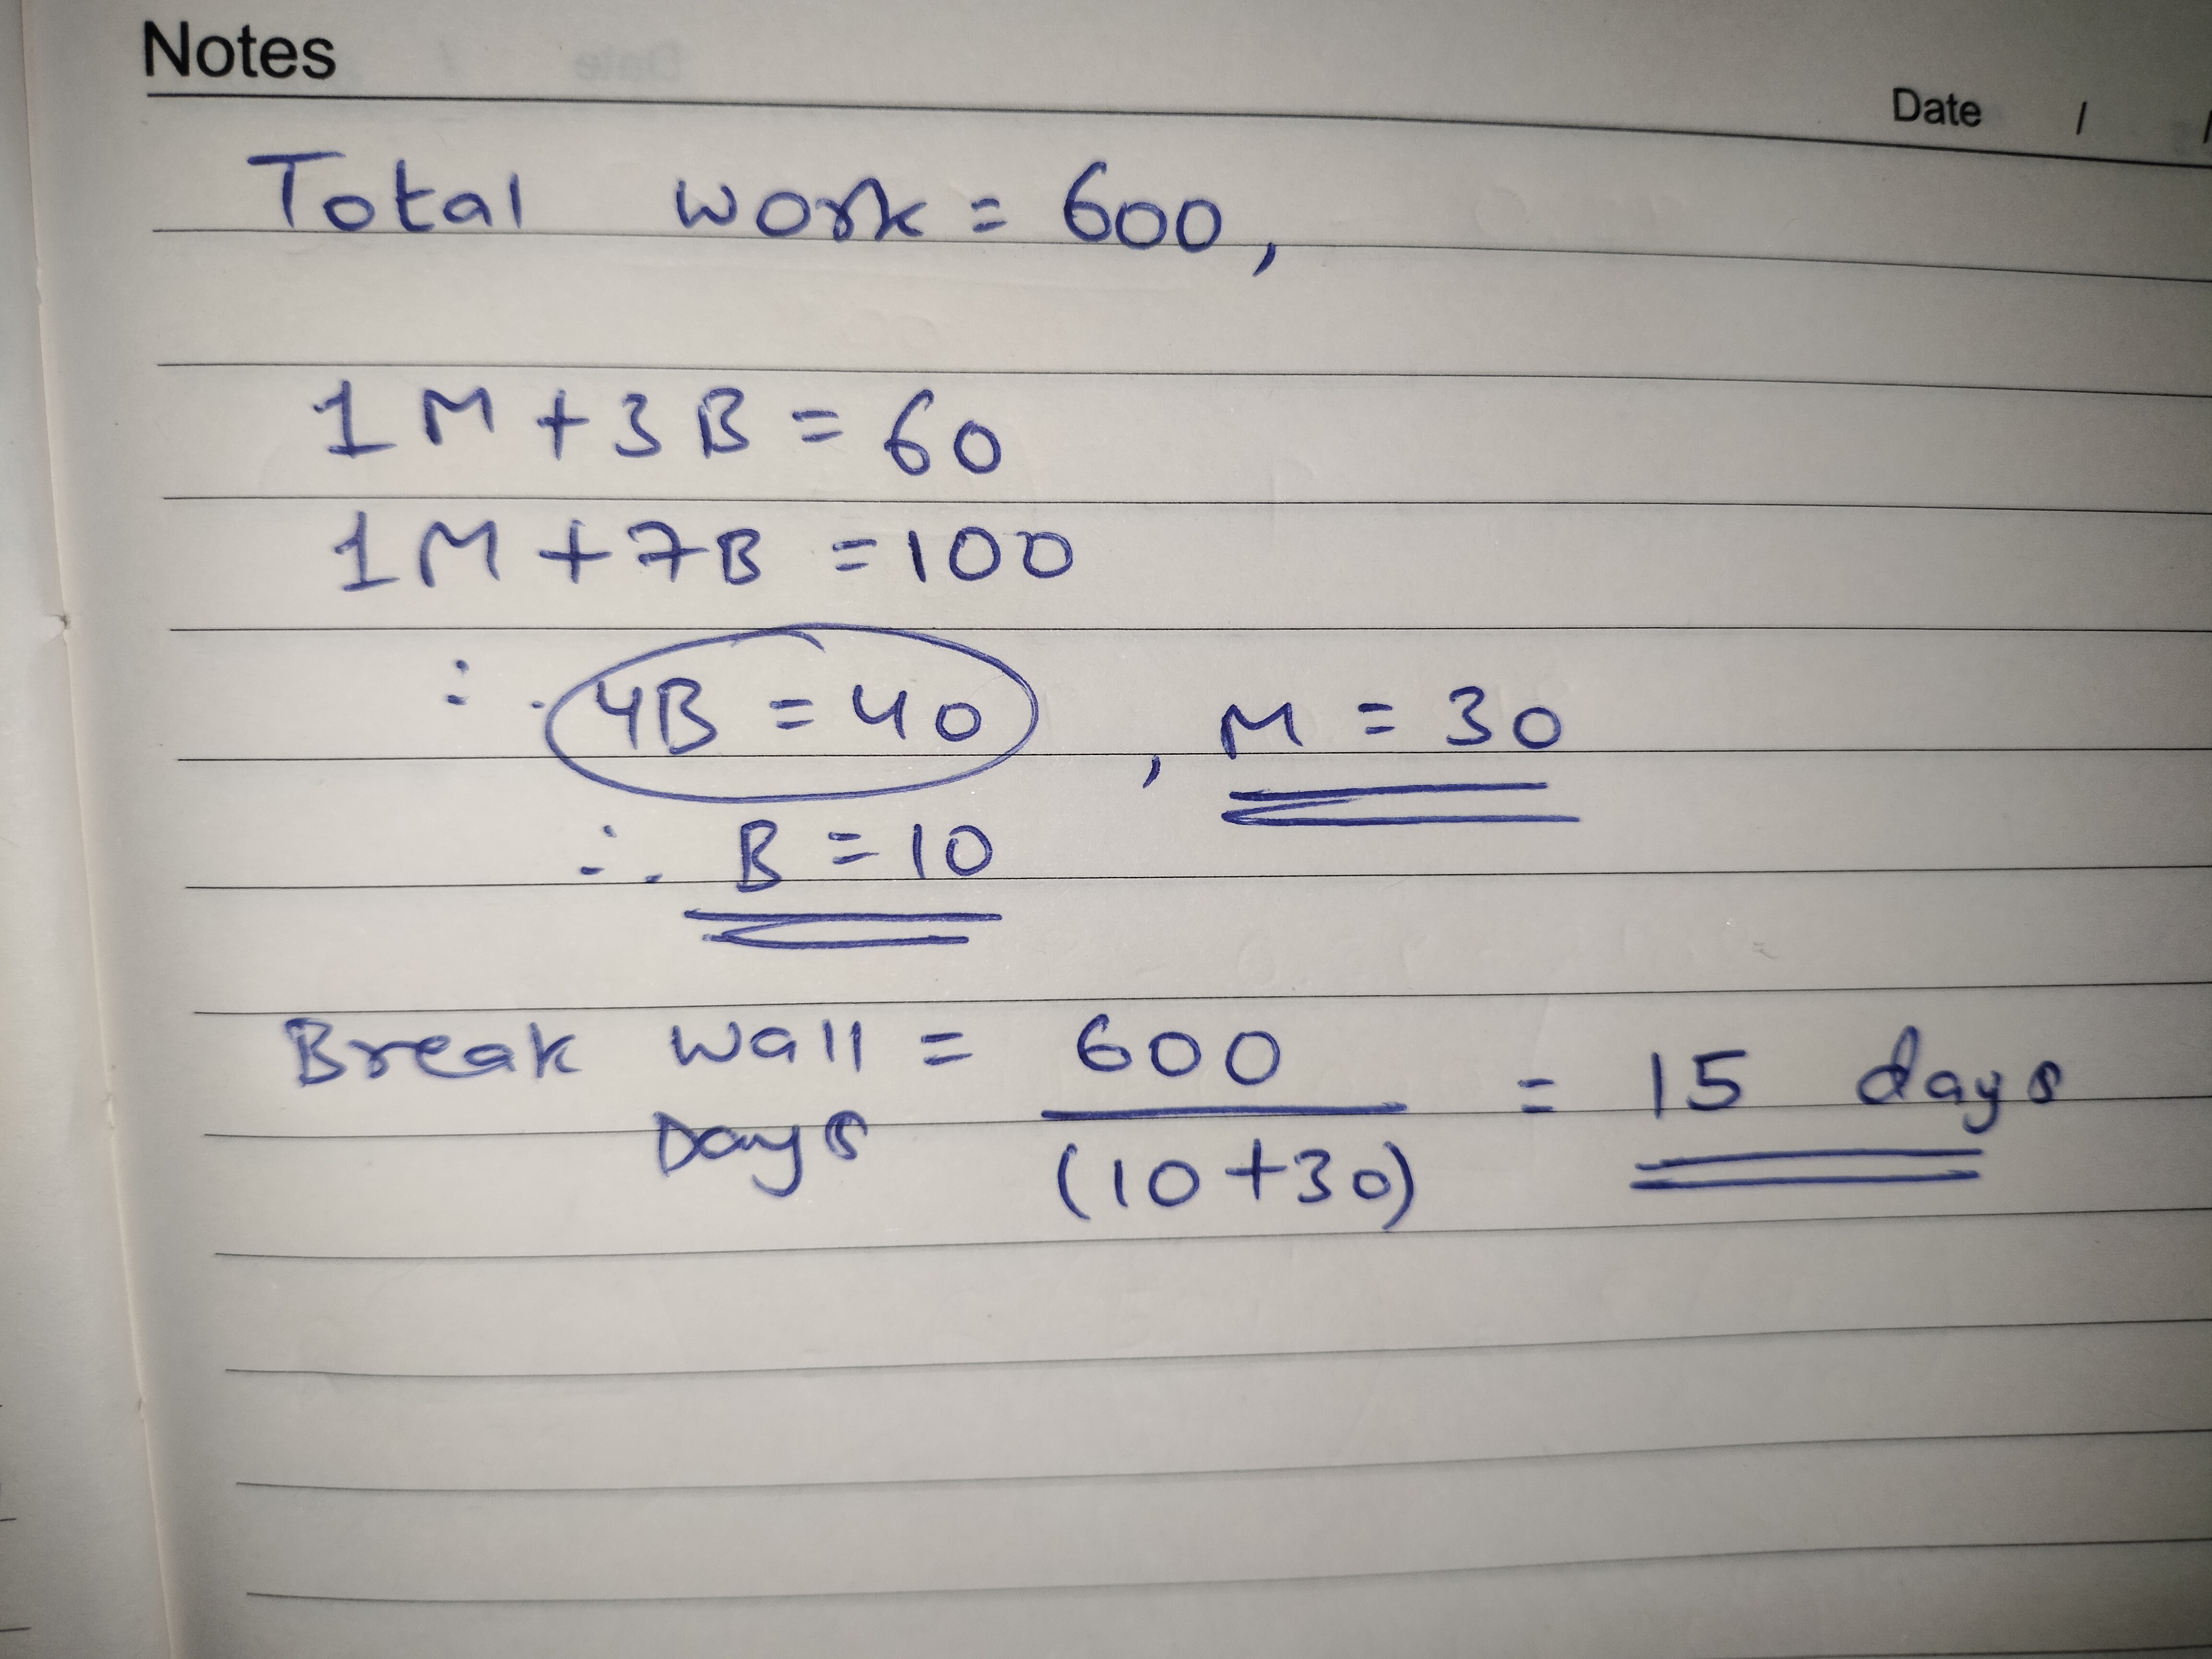 Notes
Date / /
Total work = 600,
1M + 3B = 60
1M + 7B = 100
∴ 4B = 40 , M = 30
∴ B = 10
Break wall Days = 600 / (10+30) = 15 days